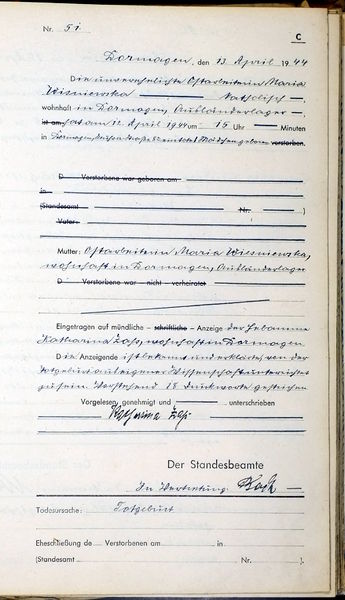 Nr. 51
C
Dormagen, den 13. April 1944
Die unverehelichte Ostarbeiterin Maria
Wisniewska — katholisch —
wohnhaft in Dormagen, Ausländerlager —
ist am hat am 12. April 1944 um 15 Uhr — Minuten
in Dormagen, ein totes Mädchen geboren verstorben.
D Verstorbene war geboren am
in
(Standesamt Nr. )
Vater:
Mutter: Ostarbeiterin Maria Wiesniewska,
wohnhaft in Dormagen, Ausländerlager
D Verstorbene war — nicht verheiratet
Eingetragen auf mündliche — schriftliche — Anzeige der Hebamme
Katharina Zoss, wohnhaft in Dormagen.
Die Anzeigende ist bekannt und erklärte, von der
Totgeburt aus eigener Wissenschaft unterrichtet
zu sein. Vorstehend 18 Druckworte gestrichen
Vorgelesen, genehmigt und unterschrieben
Katharina Zoss
Der Standesbeamte
In Vertretung: Koch
Todesursache: Totgeburt
Eheschließung de Verstorbenen am in
(Standesamt Nr. ).